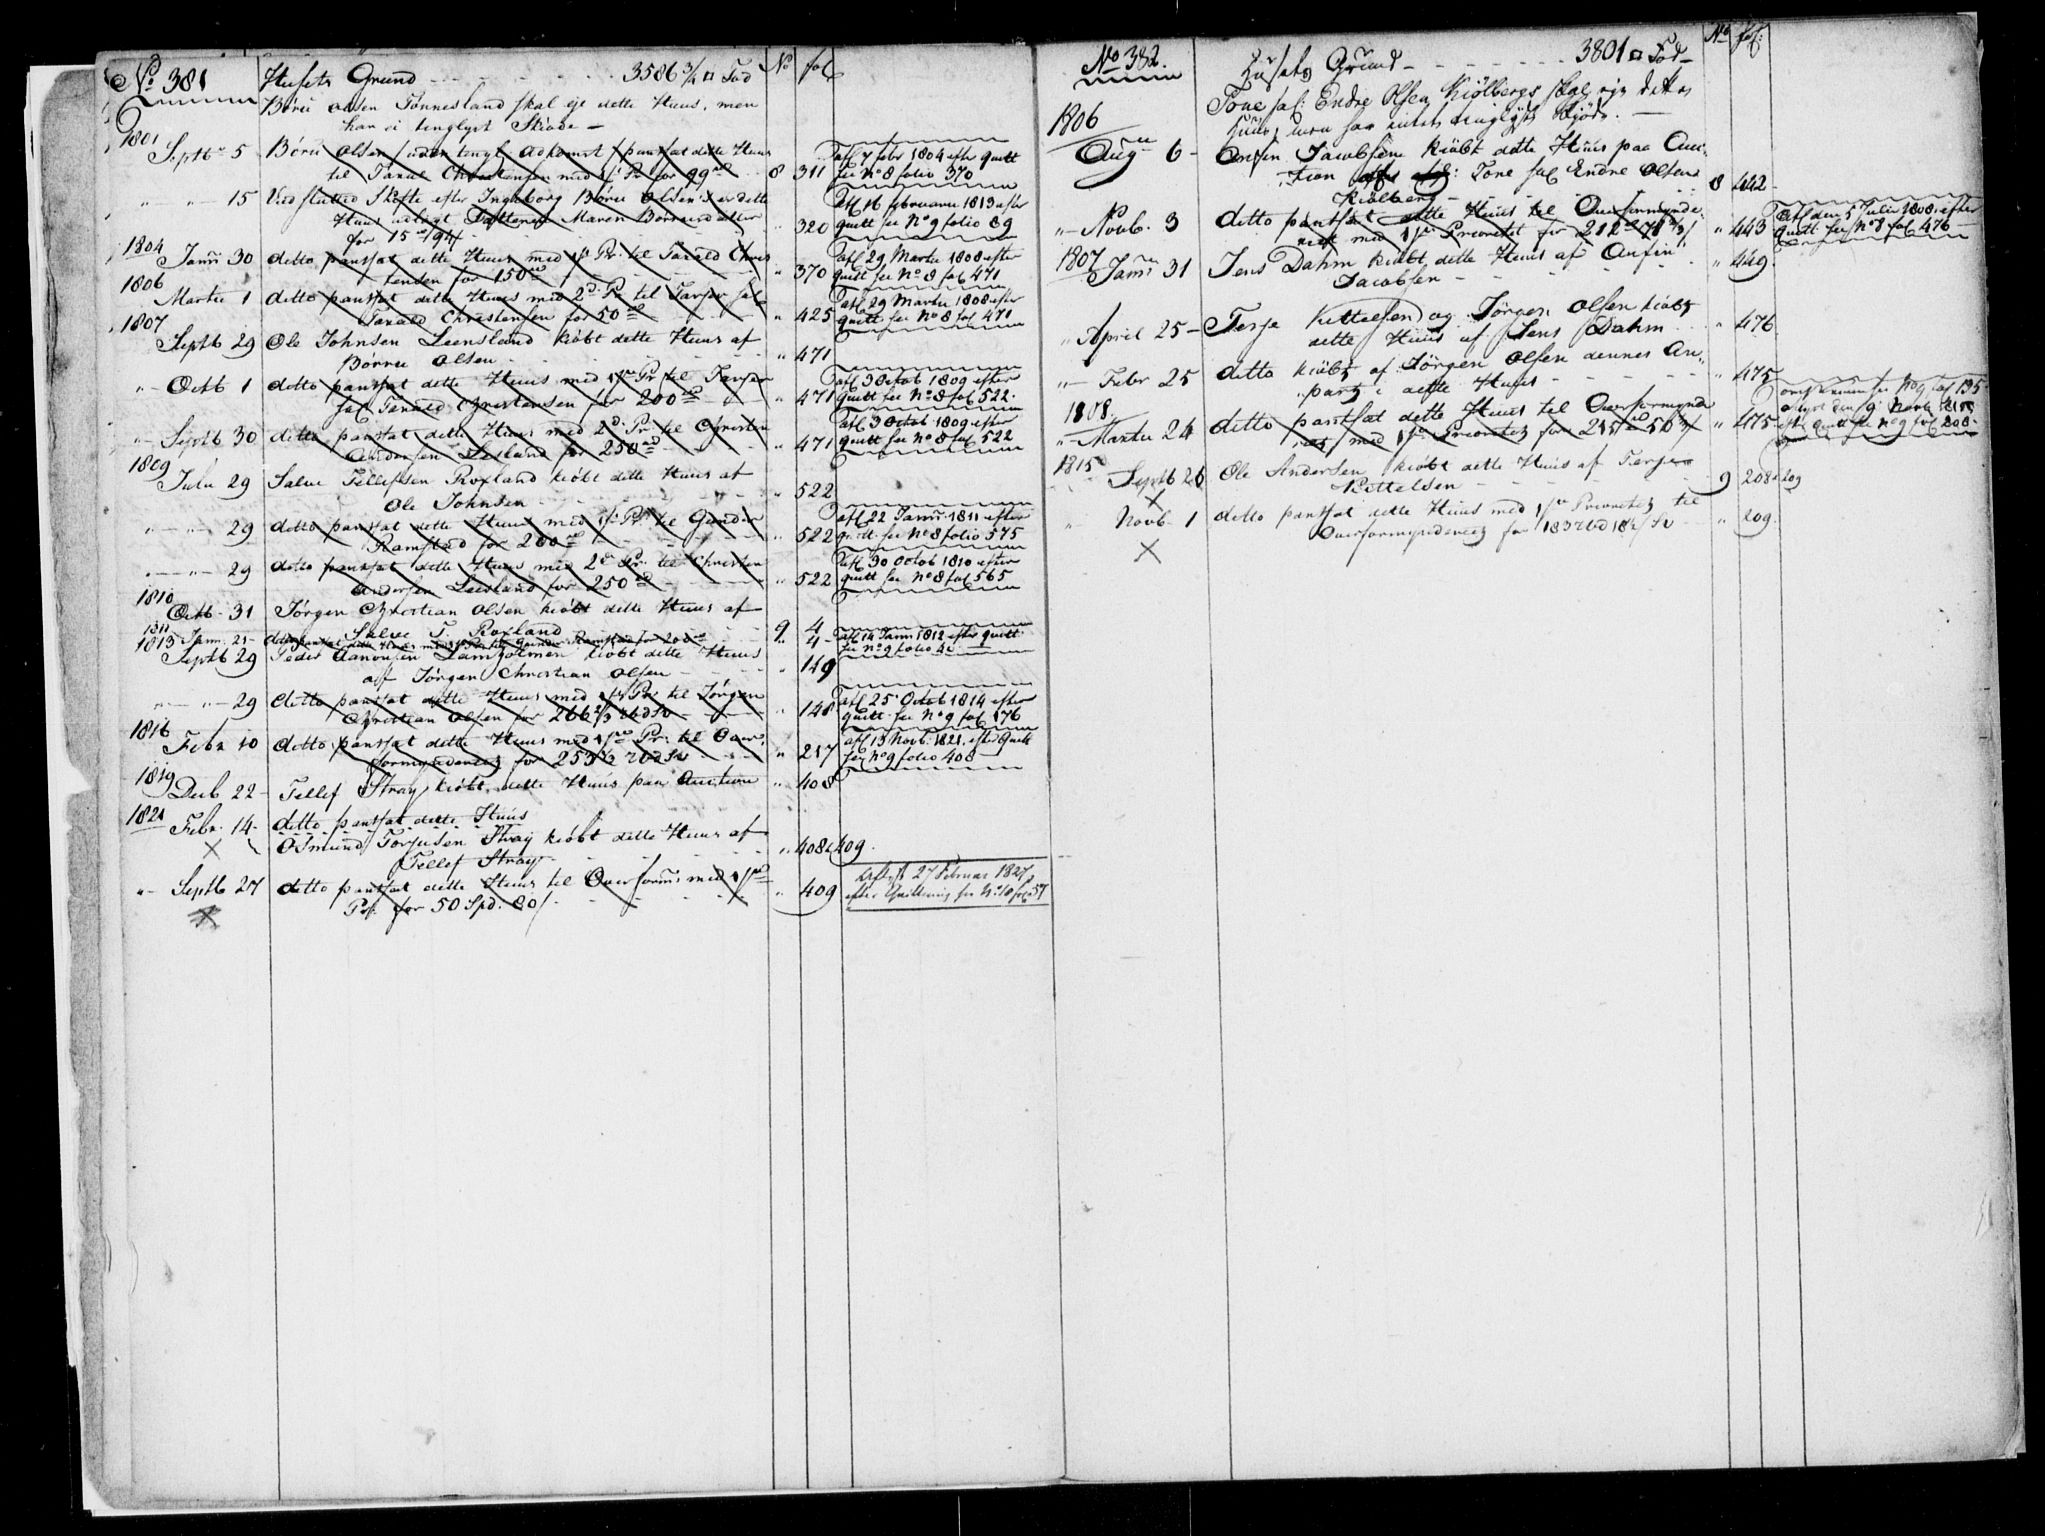 No 381 Husets Grund 3586 3/4 □ Fod No fol
Børre Olsen Tønnesland skal eje dette Huus, men
han ei tinglyst Skiøde
1801
Septb 5 Børre Olsen uden tingl. Adkomst pantsat dette Huus
til Taral Christensen med 1st Pr for 99 rd 8 311 afl 7 febr 1804 efter quitt
see No 8 folio 370
" " 15 Ved sluttet Skifte efter Ingeborg Børre Olsens er dette
Huus udlagt Datteren Maren Børresdatter
for 15 rd " 320 Afl 16 februarii 1813 efter
quitt see No 9 folio 89
1804
Janri 30 ditto pantsat dette Huus med 1st Pr. til Tarald Chris
tensen for 150 rd " 370 afl 29 Martii 1808 efter
quitt see No 8 fol 471
1806
Martii 1 ditto pantsat dette Huus med 2d Pr til Tarjer sal.
Tarald Christensen for 50 rd " 425 afl 29 Martii 1808 efter
quitt see No 8 fol 471
1807
Septb 29 Ole Johnsen Leensland kiøbt dette Huus af
Børre Olsen " 471
" Octb 1 ditto pantsat dette Huus med 1ste Pr til Tarjer
sal Tarald Christensen for 200 rd " 471 afl 3 Octob 1809 efter
quitt see No 8 fol 522.
" Septb 30 ditto pantsat dette Huus med 2d Pr til Christen
Andersen Leesland for 250 rd " 471 afl 3 Octob 1809 efter
quitt see No 8 fol 522
1809
Julii 29 Salve Tellefsen Roxland kiøbt dette Huus af
Ole Johnsen " 522
" " 29 ditto pantsat dette Huus med 1st Pr til Gunder
Ramstad for 200 rd " 522 afl 22 Janri 1811 efter
quitt see No 8 folio 575
" " 29 ditto pantsat dette Huus med 2d Pr. til Christen
Andersen Leesland for 250 rd " 522 Afl 30 Octob 1810 efter
quitt see No 8 fol 565
1810
Octb 31 Jørgen Christian Olsen kiøbt dette Huus af
Salve T. Roxland 9 4
1811
Janri 21 ditto pantsat dette Huus med 1st Pr til Gunder Ramstad for 200 rd " 4 afl 14 Janri 1812 efter quitt
see No 9 folio
1813
Septb 29 Peder Aanonsen Langholmen kiøbt dette Huus
af Jørgen Christian Olsen " 149
" " 29 ditto pantsat dette Huus med 1st Pr til Jørgen
Christian Olsen for 266 2/3 rbd Sv " 148 afl 25 Octob 1814 efter
quitt see No 9 fol 176
1816
Febr 10 ditto pantsat dette Huus med 1ste Pr. til Over
formynderiet for 253 1/3 rbd Sv " 217 afl 13 Novb. 1821. efter Quitt
see No 9 folio 408
1819
Decb 22 Tellef Stray kiøbt dette Huus paa Auction " 408
1821
Febr. 14 ditto pantsat dette Huus
Osmund Torjusen Stray kiøbt dette Huus af
Tellef Stray " 408 & 409.
" Septb 27 ditto pantsat dette Huus til Overform: med 1ste
Pr. for 50 Spd. " 409 aflyst 27 Februar 1827
efter Quittering see No 10 fol 57
No 382. Husets Grund 3801 □ Fod No fol:
Tone sal: Endre Olsen Kiølbergs skal eje dette
Huus, men har intet tinglyst Skjøde.
1806
Aug 6 Anfin Jacobsen kiøbt dette Huus paa Auc
tion Tone sal Endre Olsens
Kiølberg 8 442
" Novb. 3 ditto pantsat dette Huus til Overformynde
riet med 1ste Prioritet for 212 rd " 443 Afl den 5 Julii 1808. efter
Quitt: see No 8 fol 476
1807
Janri 31 Jens Dahm kiøbt dette Huus af Anfin
Jacobsen " 449.
" April 25 Terje Kittelsen og Jørgen Olsen kiøbt
dette Huus af Jens Dahm " 476
" Febr 25 ditto kiøbt af Jørgen Olsen dennes An
part i dette Huus " 475
1808.
" Martii 24 ditto pantsat dette Huus til Overformynde
riet med 1ste Prioritet for 215 rd " 475 see No 9 fol 135
aflyst den 9 Novb 1815
eft: Quitt see No 9 fol 208
1815
Septb 26 Ole Andersen kiøbt dette Huus af Terje
Kittelsen 9 208 & 209
" Novb 1 ditto pantsat dette Huus med 1ste Prioritet til
Overformynderiet for 183 rbd 18 s Sv " 209.